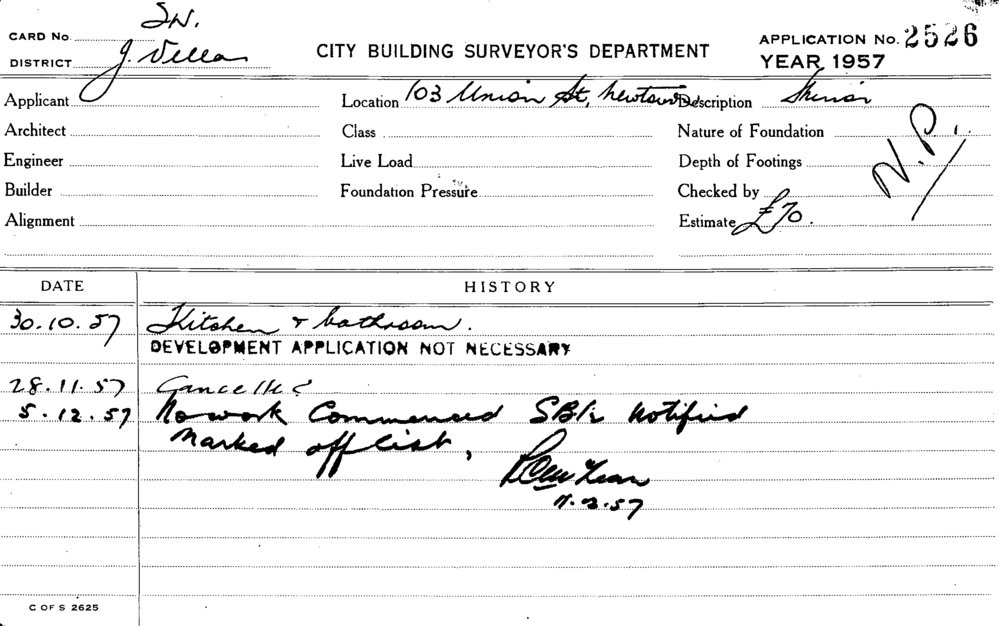 S.W.
CARD No.
DISTRICT
J. Vella
CITY BUILDING SURVEYOR'S DEPARTMENT
APPLICATION No. 2526
YEAR 1957
Applicant
Location 103 Union St, Newtown
Description
Architect
Class
Nature of Foundation
N.P.
Engineer
Live Load
Depth of Footings
Builder
Foundation Pressure
Checked by
Alignment
Estimate £70.
DATE HISTORY
30.10.57 Kitchen & bathroom.
DEVELOPMENT APPLICATION NOT NECESSARY
28.11.57
5.12.57 No work Commenced notified
Marked off list,
57
C OF S 2625